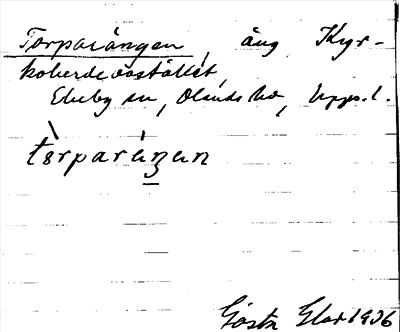 Torparängen, äng Kyr-
koherdebostället,
Ekeby sn, Olands hd, Upps. l.
tòrparáŋen
Gösta 1936